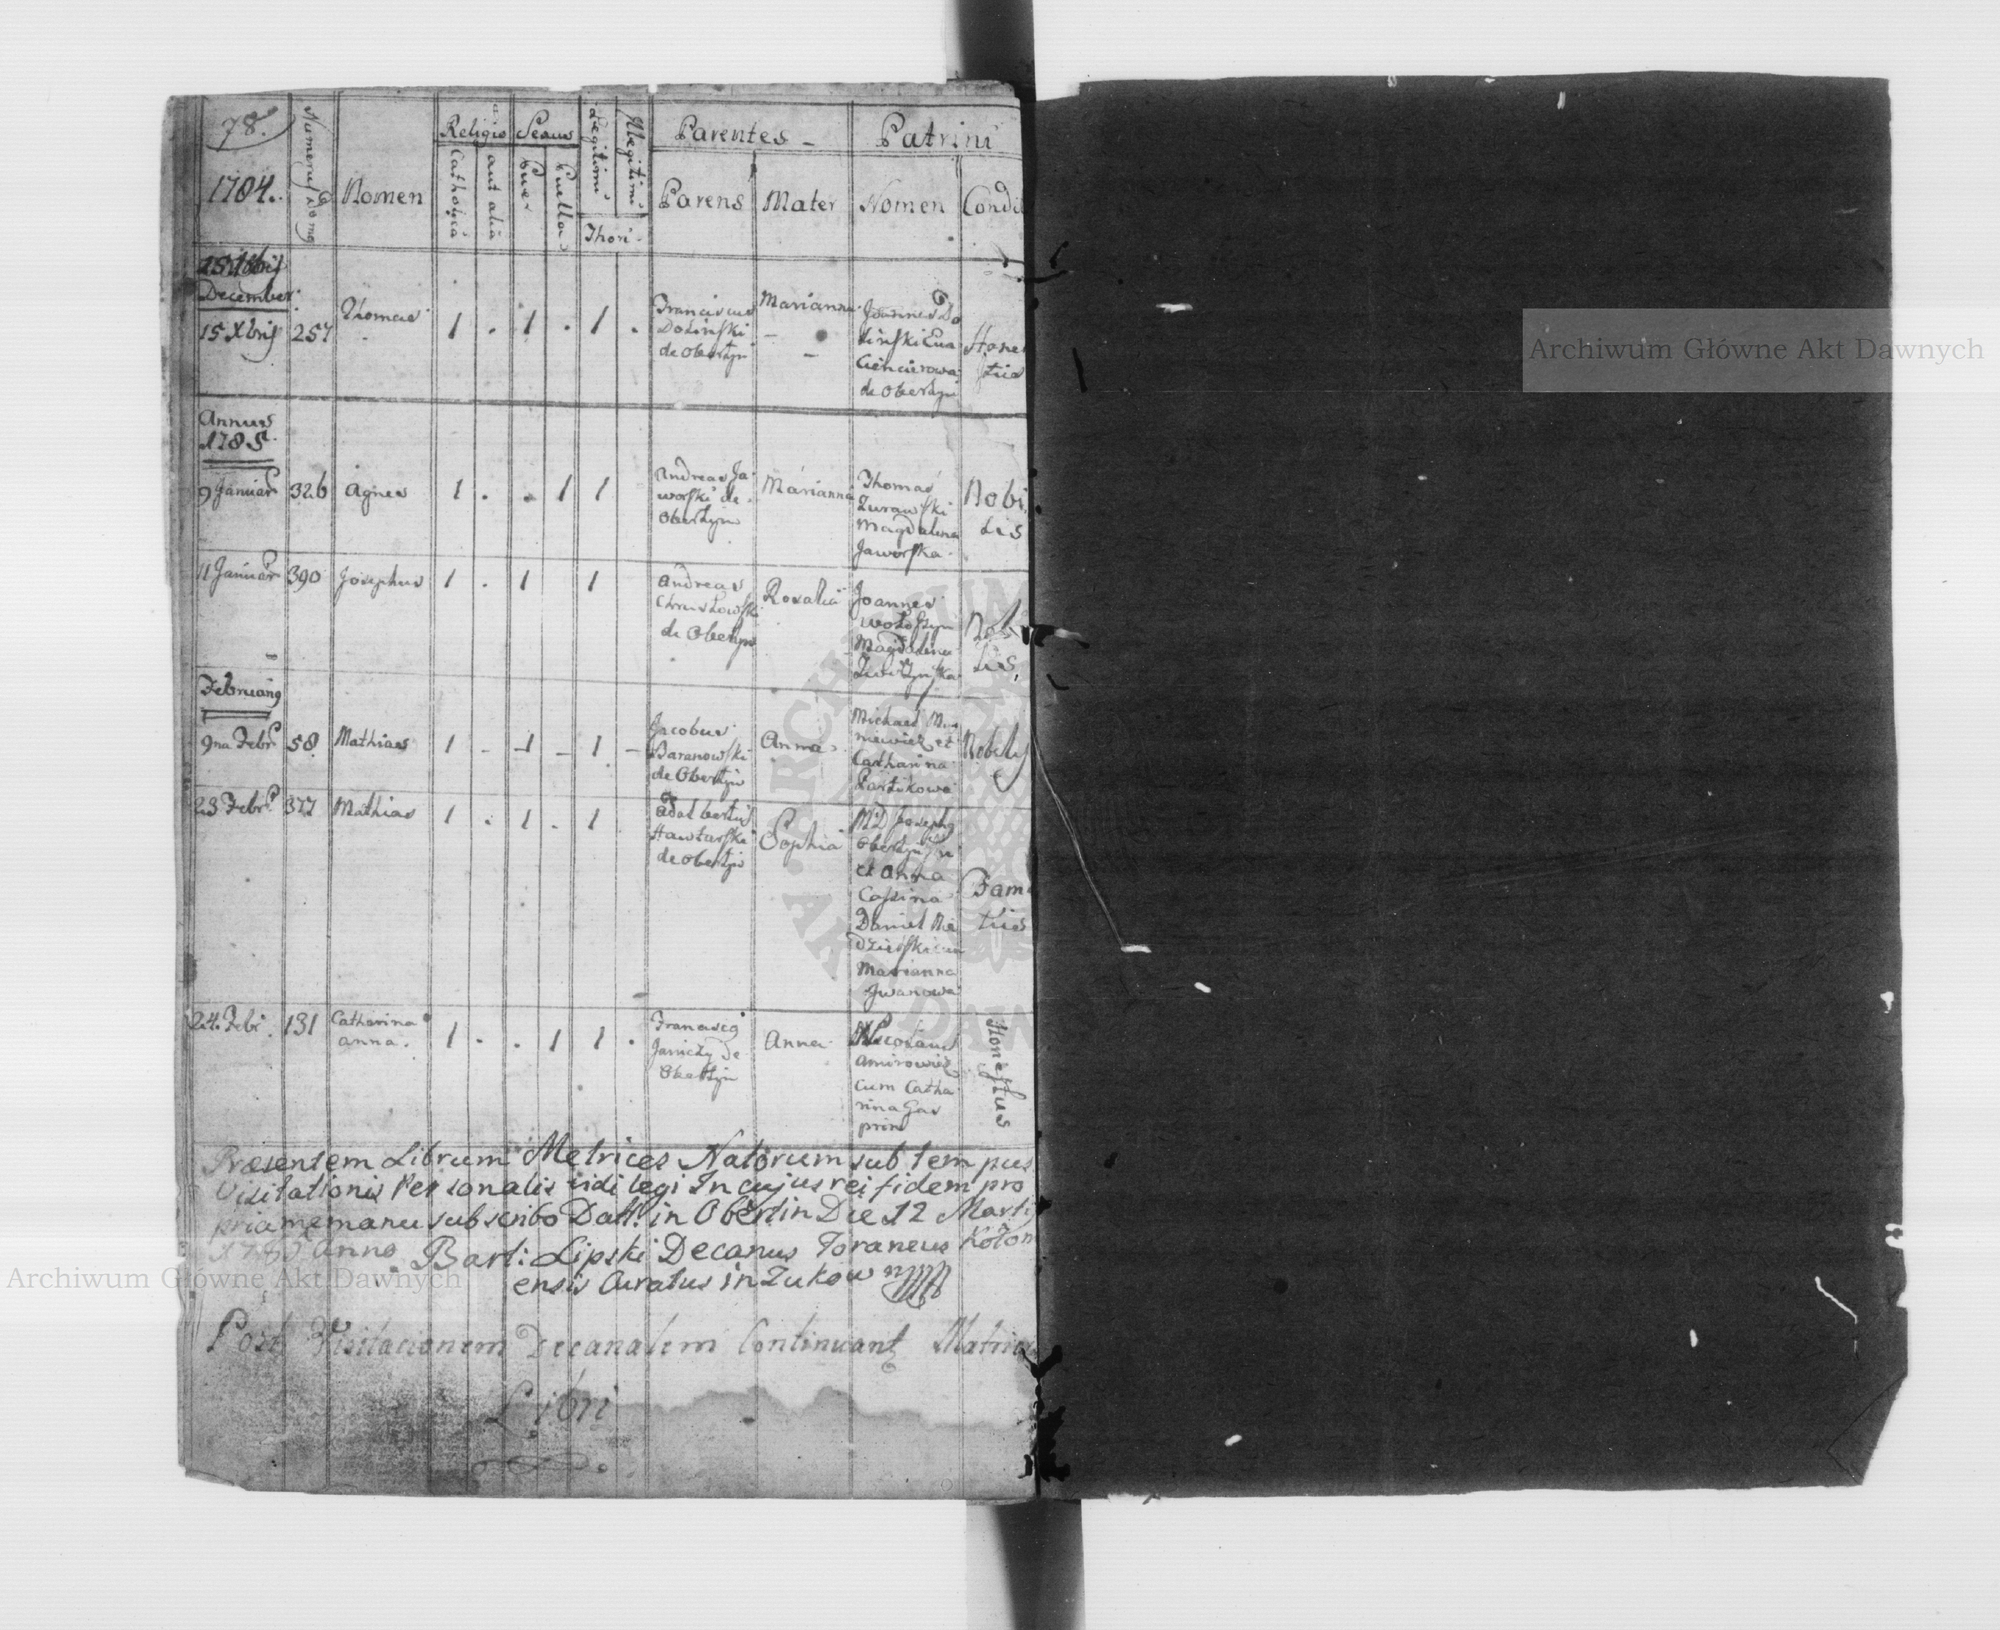 78.
1784.
Numerus Domq
Nomen
Religio
Catholica
aut alia
Sexus
Puer
Puella
Legitimi
Illegitimi
Thori
Parentes
Parens
Mater
Patrini
Nomen
Condi
December
15 Xbris 257 Thomas 1 . 1 . 1 .
Franciscus
Dolinski
de Obertyn
Marianna
Joannes Do
linski Eva
de Obertyn
Hones
tus
Annus
1785
9 Januar 326 Agnes 1 . . 1 1
Andreas Ja
worski de
Obertyn
Marianna
Thomas
Zurawski
Magdalena
Jaworska
Nobi
lis
11 Januar 390 Josephus 1 . 1 1
Andreas
de Obertyn
Rosalia
Joannes
Wołoszyn
Magdalena
Nobi
lis
9na Febr 58 Mathias 1 - 1 - 1 -
Jacobus
Baranowski
de Obertyn
Anna
Michael
et
Catharina
Nobilis
23 Febr 377 Mathias 1 . 1 . 1
Adalbertus
de Obertyn
Sophia
MD Josephq
et Anna
Daniel Nie
Marianna
Jwanowa
Fam
24. Febr 131 Catharina
anna. 1 . . 1 1 .
Franciscq
de
Obertyn
Anna
Nicolaus
cum Catha
rina Gas
Honestus
Præsentem Librum Metrices Natorum sub tempus
Visitationis Personalis vidi legi In cujus rei fidem pro
pria me manu subscribo Datt. in Obertin Die 12 Martij
Anno Bart: Lipski Decanus Foraneus Kołom
ensis Curatus in Zukow
Post Visitacionem Decanalem Continuant
Libri
Archiwum Główne Akt Dawnych
Archiwum Główne Akt Dawnych